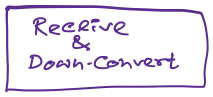 Receive
&
Down-Convert